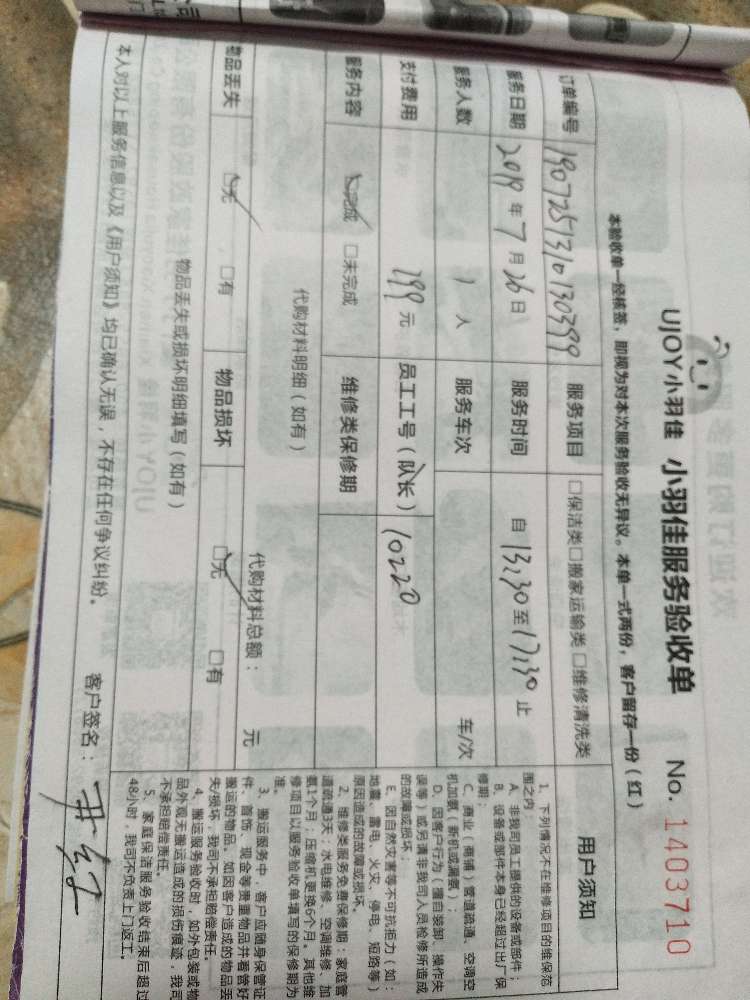 UJOY小羽佳 小羽佳服务验收单 No. 1403710
本验收单一经核签，即视为对本次服务验收无异议。本单一式两份，客户留存一份（红）
订单编号 1907257310130399 服务项目 □保洁类□搬家运输类 □维修清洗类
服务日期 2019年7月26日 服务时间 自13:30至17:30止
服务人数 1人 服务车次 车/次
支付费用 199元 员工工号（队长） 10220
服务内容 ☑完成 □未完成 维修类保修期
代购材料明细（如有） 代购材料总额： 元
物品丢失 ☑无 □有 物品损坏 ☑无 □有
物品丢失或损坏明细填写（如有）
本人对以上服务信息以及《用户须知》均已确认无误，不存在任何争议纠纷。
客户签名：
用户须知
1、下列情况不在维修项目的维保范
围之内
A、非我司员工提供的设备或部件；
B、设备或部件本身已经超过出厂保
修期；
C、商业（商铺）管道疏通、空调空
机加氨（新机或漏氨）；
D、因客户行为（擅自装卸、操作失
误等）或另请非我司人员检修所造成
的故障或损坏；
E、因自然灾害等不可抗拒力（如：
地震、雷电、火灾、停电、短路等）
原因造成的故障或损坏。
2、维修类服务免费保修期：家庭管
道疏通3天；水电维修、空调维修、加
氨1个月；压缩机更换6个月。其他维
修项目以服务验收单填写的保修期为
准。
3、搬运服务中，客户应随身保管证
件、首饰、现金等贵重物品并看管好
搬运的物品，如因客户造成的物品丢
失/损坏，我司不承担赔偿责任。
4、搬运服务验收时，如外包装或物
品外观无搬运造成的损伤痕迹，我司
不承担赔偿责任。
5、家庭保洁服务验收结束后超过
48小时，我司不负责上门返工。